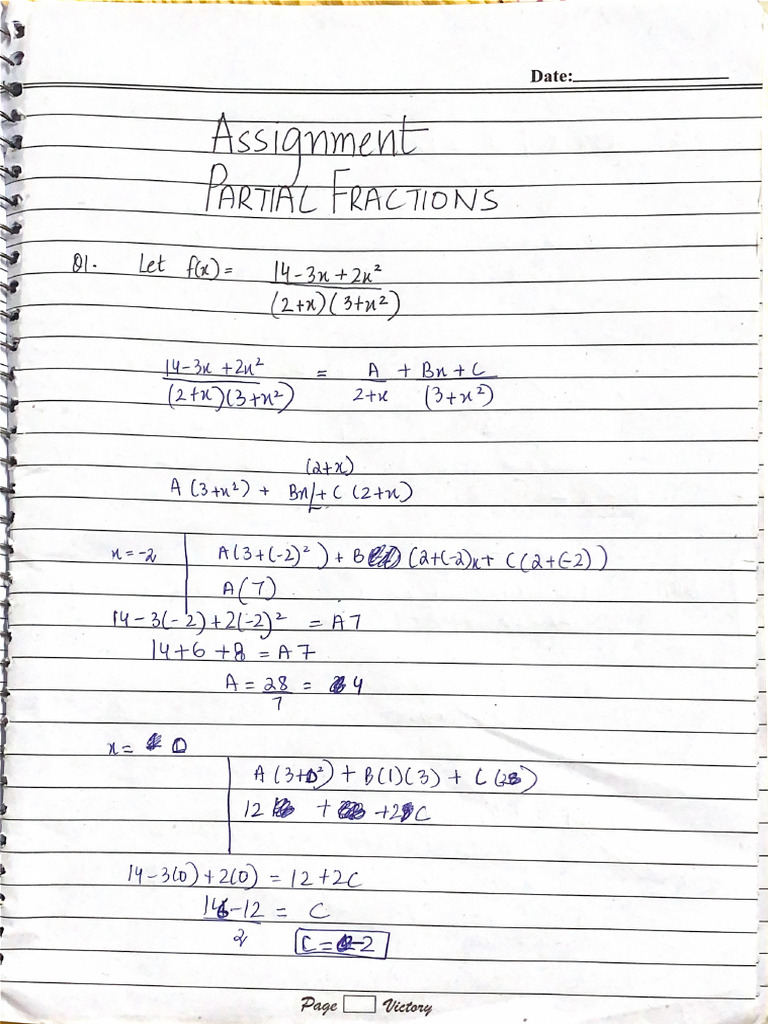 Date:
Assignment
PARTIAL FRACTIONS
Q1. Let f(x) = 14-3x+2x² / (2+x)(3+x²)
14-3x+2x² / (2+x)(3+x²) = A / 2+x + Bx+C / (3+x²)
(2+x)
A(3+x²) + Bx + C (2+x)
x=-2 | A(3+(-2)²) + B (2+(-2)x + C(2+(-2))
A(7)
14-3(-2)+2(-2)² = A7
14+6+8 = A7
A = 28/7 = 4
x = 0
A(3+0²) + B(1)(3) + C(2)
12 + +2C
14-3(0)+2(0) = 12+2C
14-12 / 2 = C
C = 2
Page Victory